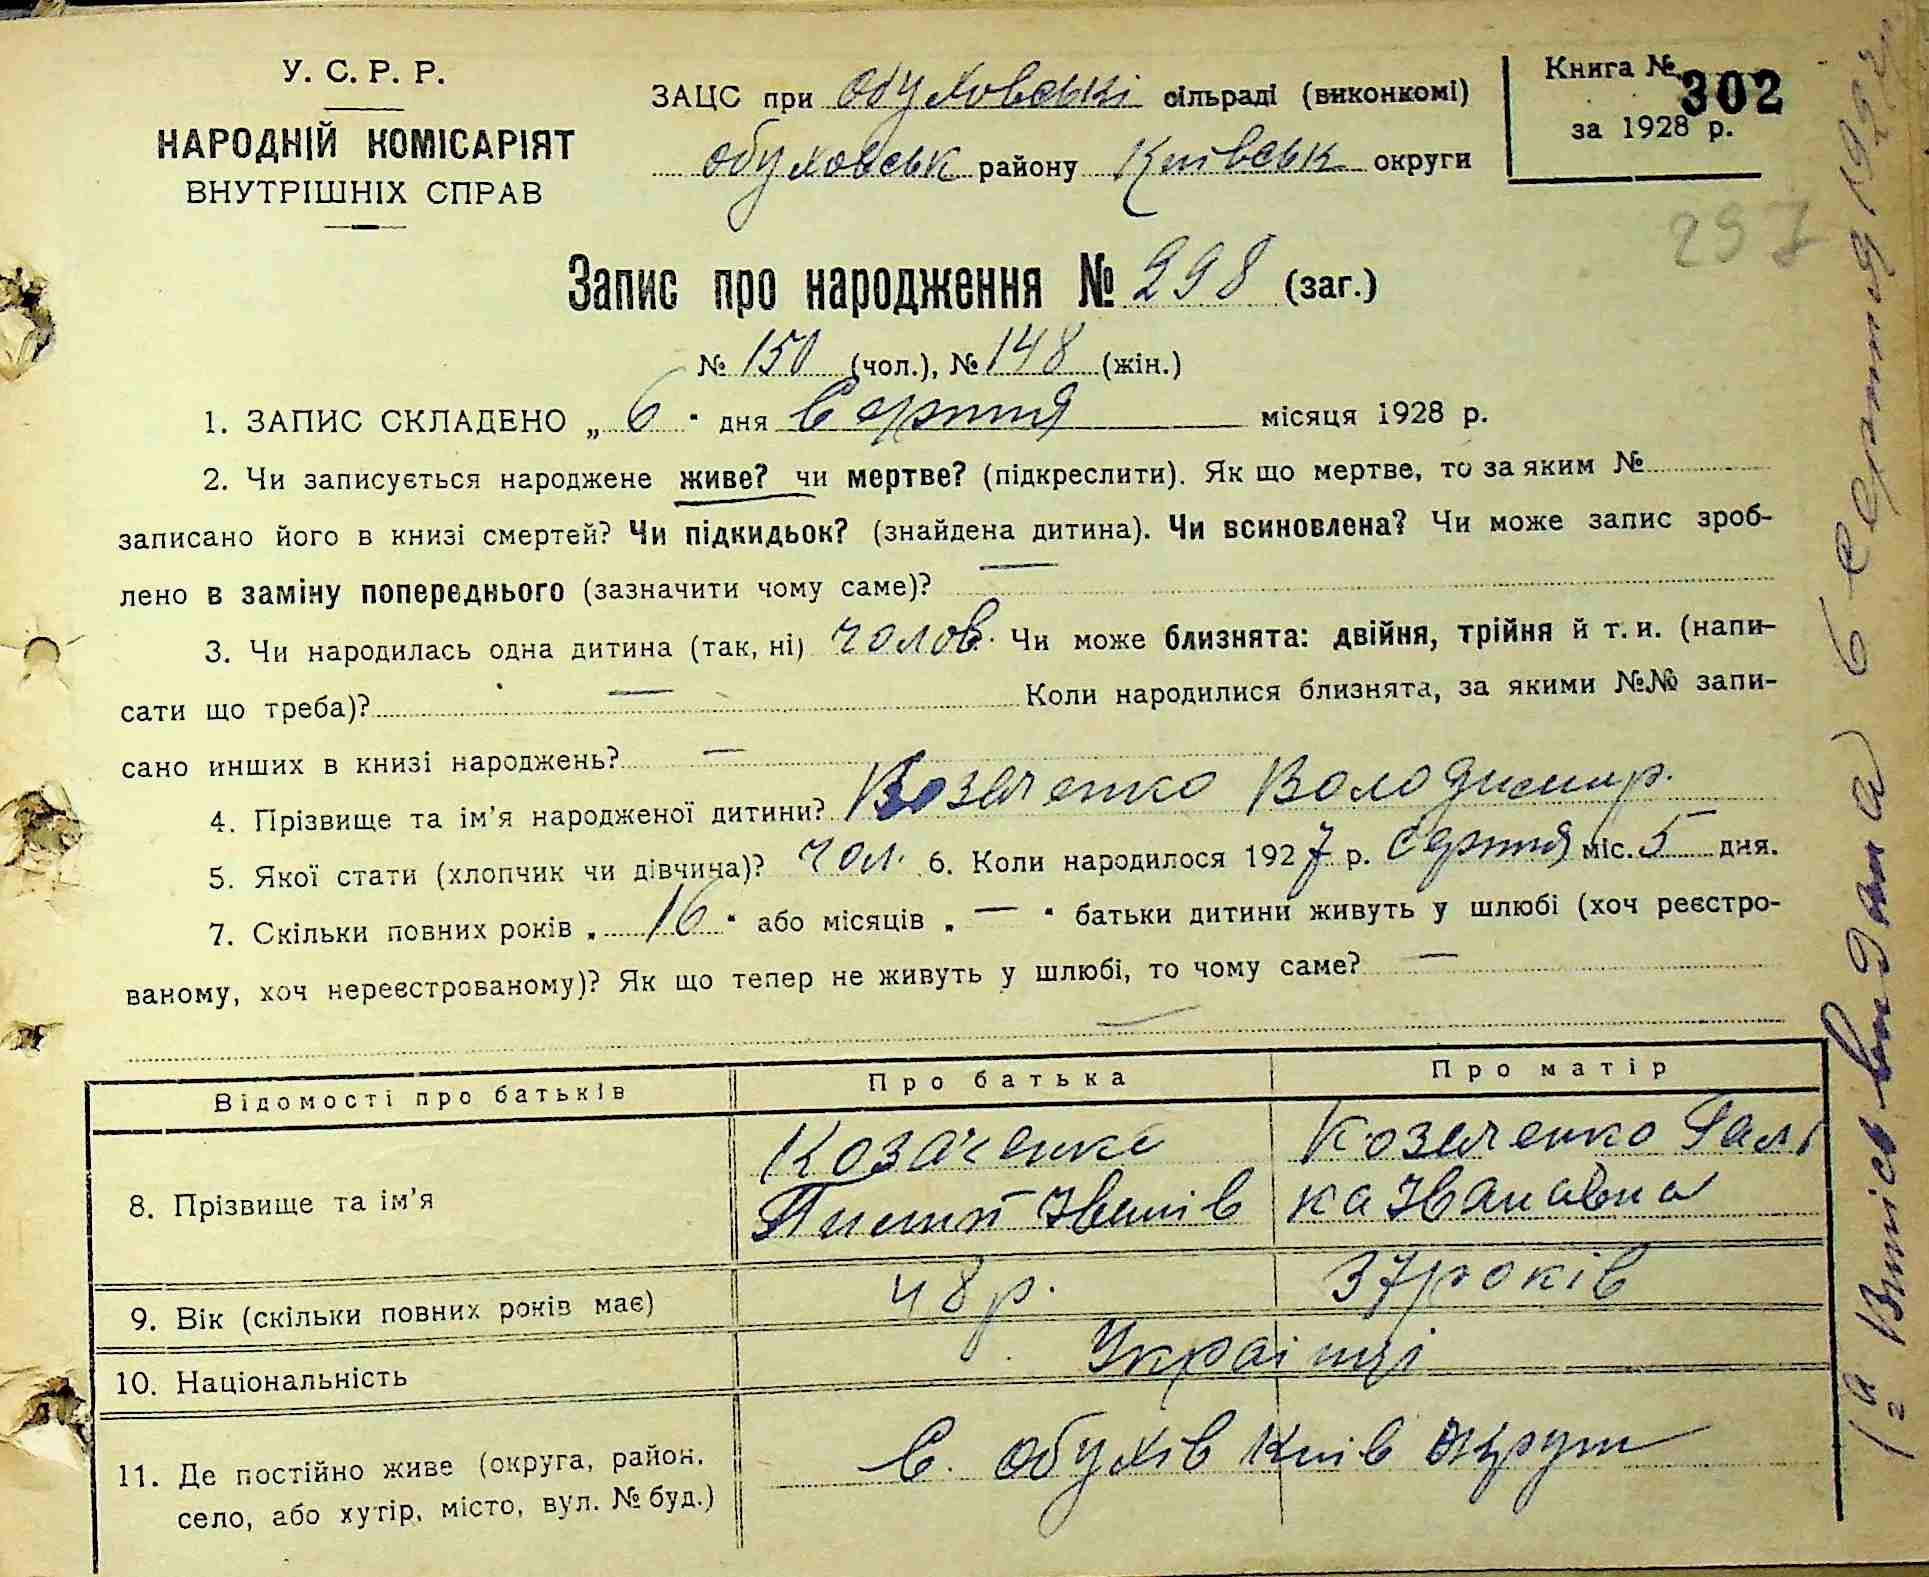 У. С. Р. Р.
НАРОДНІЙ КОМІСАРІЯТ
ВНУТРІШНІХ СПРАВ
ЗАЦС при Обуховські сільраді (виконкомі)
Обуховськ району Київськ округи
Книга № 302
за 1928 р.
297
Запис про народження № 298 (заг.)
№ 150 (чол.), № 148 (жін.)
1. ЗАПИС СКЛАДЕНО „ 6 " дня Серпня місяця 1928 р.
2. Чи записується народжене живе? чи мертве? (підкреслити). Як що мертве, то за яким №
записано його в книзі смертей? Чи підкидьок? (знайдена дитина). Чи всиновлена? Чи може запис зроб-
лено в заміну попереднього (зазначити чому саме)? —
3. Чи народилась одна дитина (так, ні) чолов. Чи може близнята: двійня, трійня й т. и. (напи-
сати що треба)? — Коли народилися близнята, за якими №№ запи-
сано инших в книзі народжень? —
4. Прізвище та ім'я народженої дитини? Козаченко Володимир.
5. Якої стати (хлопчик чи дівчина)? чол. 6. Коли народилося 1927 р. серпня міс. 5 дня.
7. Скільки повних років „ 16 " або місяців „ — " батьки дитини живуть у шлюбі (хоч реєстро-
ваному, хоч нереєстрованому)? Як що тепер не живуть у шлюбі, то чому саме? —
Відомості про батьків Про батька Про матір
8. Прізвище та ім'я Козаченко Козаченко Гап
Іванів ка Івановна
9. Вік (скільки повних років має) 48 р. 37 років
10. Національність Українці
11. Де постійно живе (округа, район, с. Обухів Київ округи
село, або хутір, місто, вул. № буд.)
1а Випись видана 6 серпня